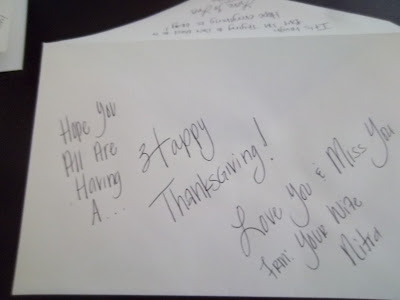 Hope You
All Are
Having
A...
Happy
Thanksgiving!
Love You & Miss You
From: Your Wife